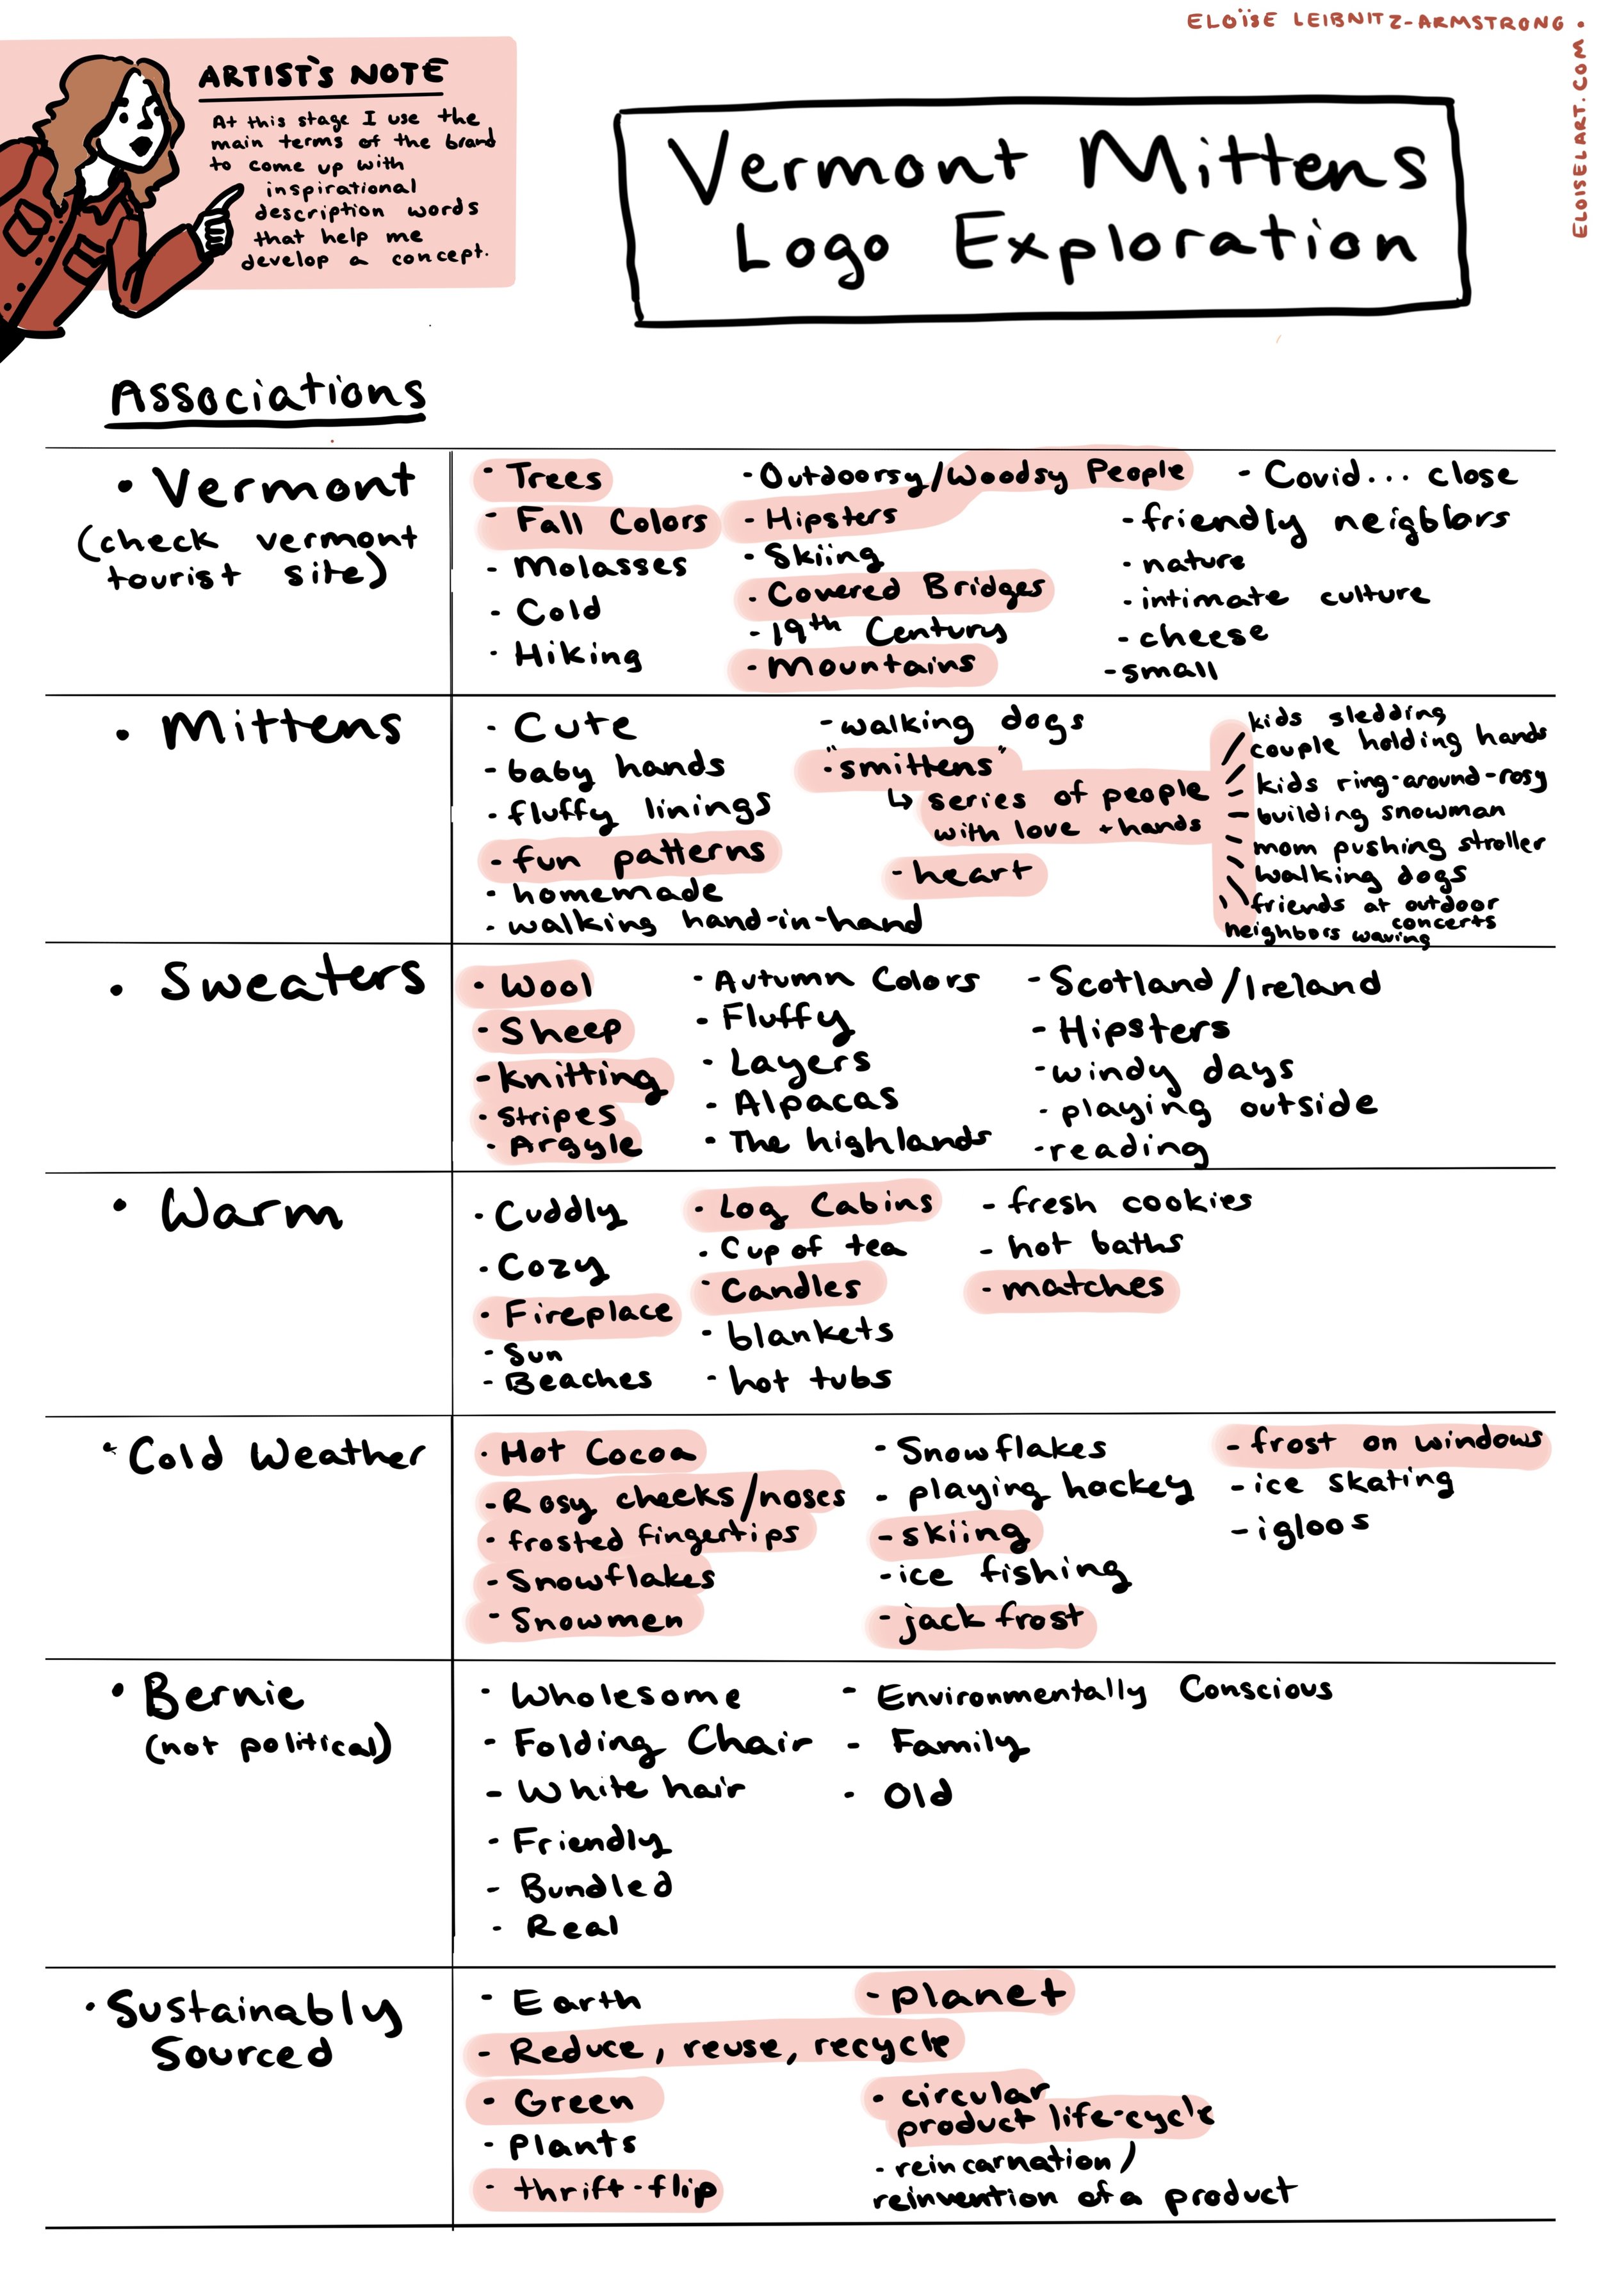 ELOÏSE LEIBNITZ-ARMSTRONG •
ELOISELART.COM
ARTIST'S NOTE
At this stage I use the
main terms of the brand
to come up with
inspirational
description words
that help me
develop a concept.
Vermont Mittens
Logo Exploration
Associations
• Vermont
(check vermont
tourist site)
- Trees
- Fall Colors
- Molasses
- Cold
- Hiking
- Outdoorsy/Woodsy People
- Hipsters
- Skiing
- Covered Bridges
- 19th Century
- Mountains
- Covid... close
- friendly neigbbors
- nature
- intimate culture
- cheese
- small
• Mittens
- Cute
- baby hands
- fluffy linings
- fun patterns
- homemade
- walking hand-in-hand
- walking dogs
- "smittens"
↳ series of people
with love + hands
- heart
kids sledding
couple holding hands
kids ring-around-rosy
building snowman
mom pushing stroller
walking dogs
friends at outdoor
concerts
neighbors waving
• Sweaters
- Wool
- Sheep
- Knitting
- Stripes
- Argyle
- Autumn Colors
- Fluffy
- Layers
- Alpacas
- The highlands
- Scotland/Ireland
- Hipsters
- windy days
- playing outside
- reading
• Warm
- Cuddly
- Cozy
- Fireplace
- Sun
- Beaches
- Log Cabins
- Cup of tea
- Candles
- blankets
- hot tubs
- fresh cookies
- hot baths
- matches
• Cold Weather
- Hot Cocoa
- Rosy cheeks/noses
- frosted fingertips
- Snowflakes
- Snowmen
- Snowflakes
- playing hockey
- skiing
- ice fishing
- jack frost
- frost on windows
- ice skating
- igloos
• Bernie
(not political)
- Wholesome
- Folding Chair
- White hair
- Friendly
- Bundled
- Real
- Environmentally Conscious
- Family
- Old
• Sustainably
Sourced
- Earth
- Reduce, reuse, recycle
- Green
- Plants
- thrift-flip
- planet
- circular
product life-cycle
- reincarnation/
reinvention of a product